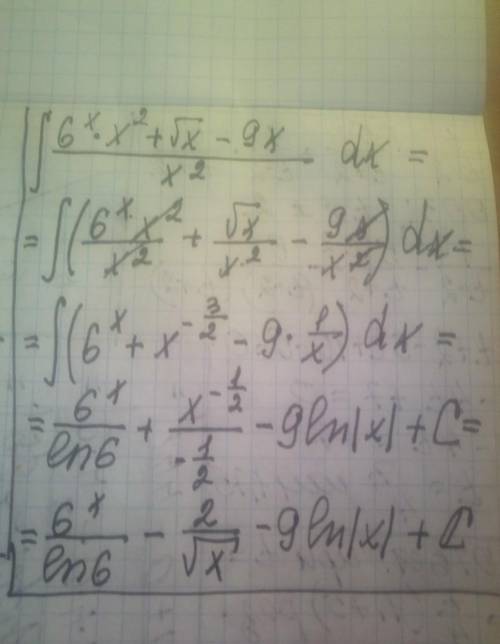 ∫ (6^x · x^2 + √x - 9x) / x^2 dx =
= ∫ (6^x x^2 / x^2 + √x / x^2 - 9x / x^2) dx =
= ∫ (6^x + x^(-3/2) - 9 · 1/x) dx =
= 6^x / ln6 + x^(-1/2) / (-1/2) - 9ln|x| + C =
= 6^x / ln6 - 2/√x - 9ln|x| + C